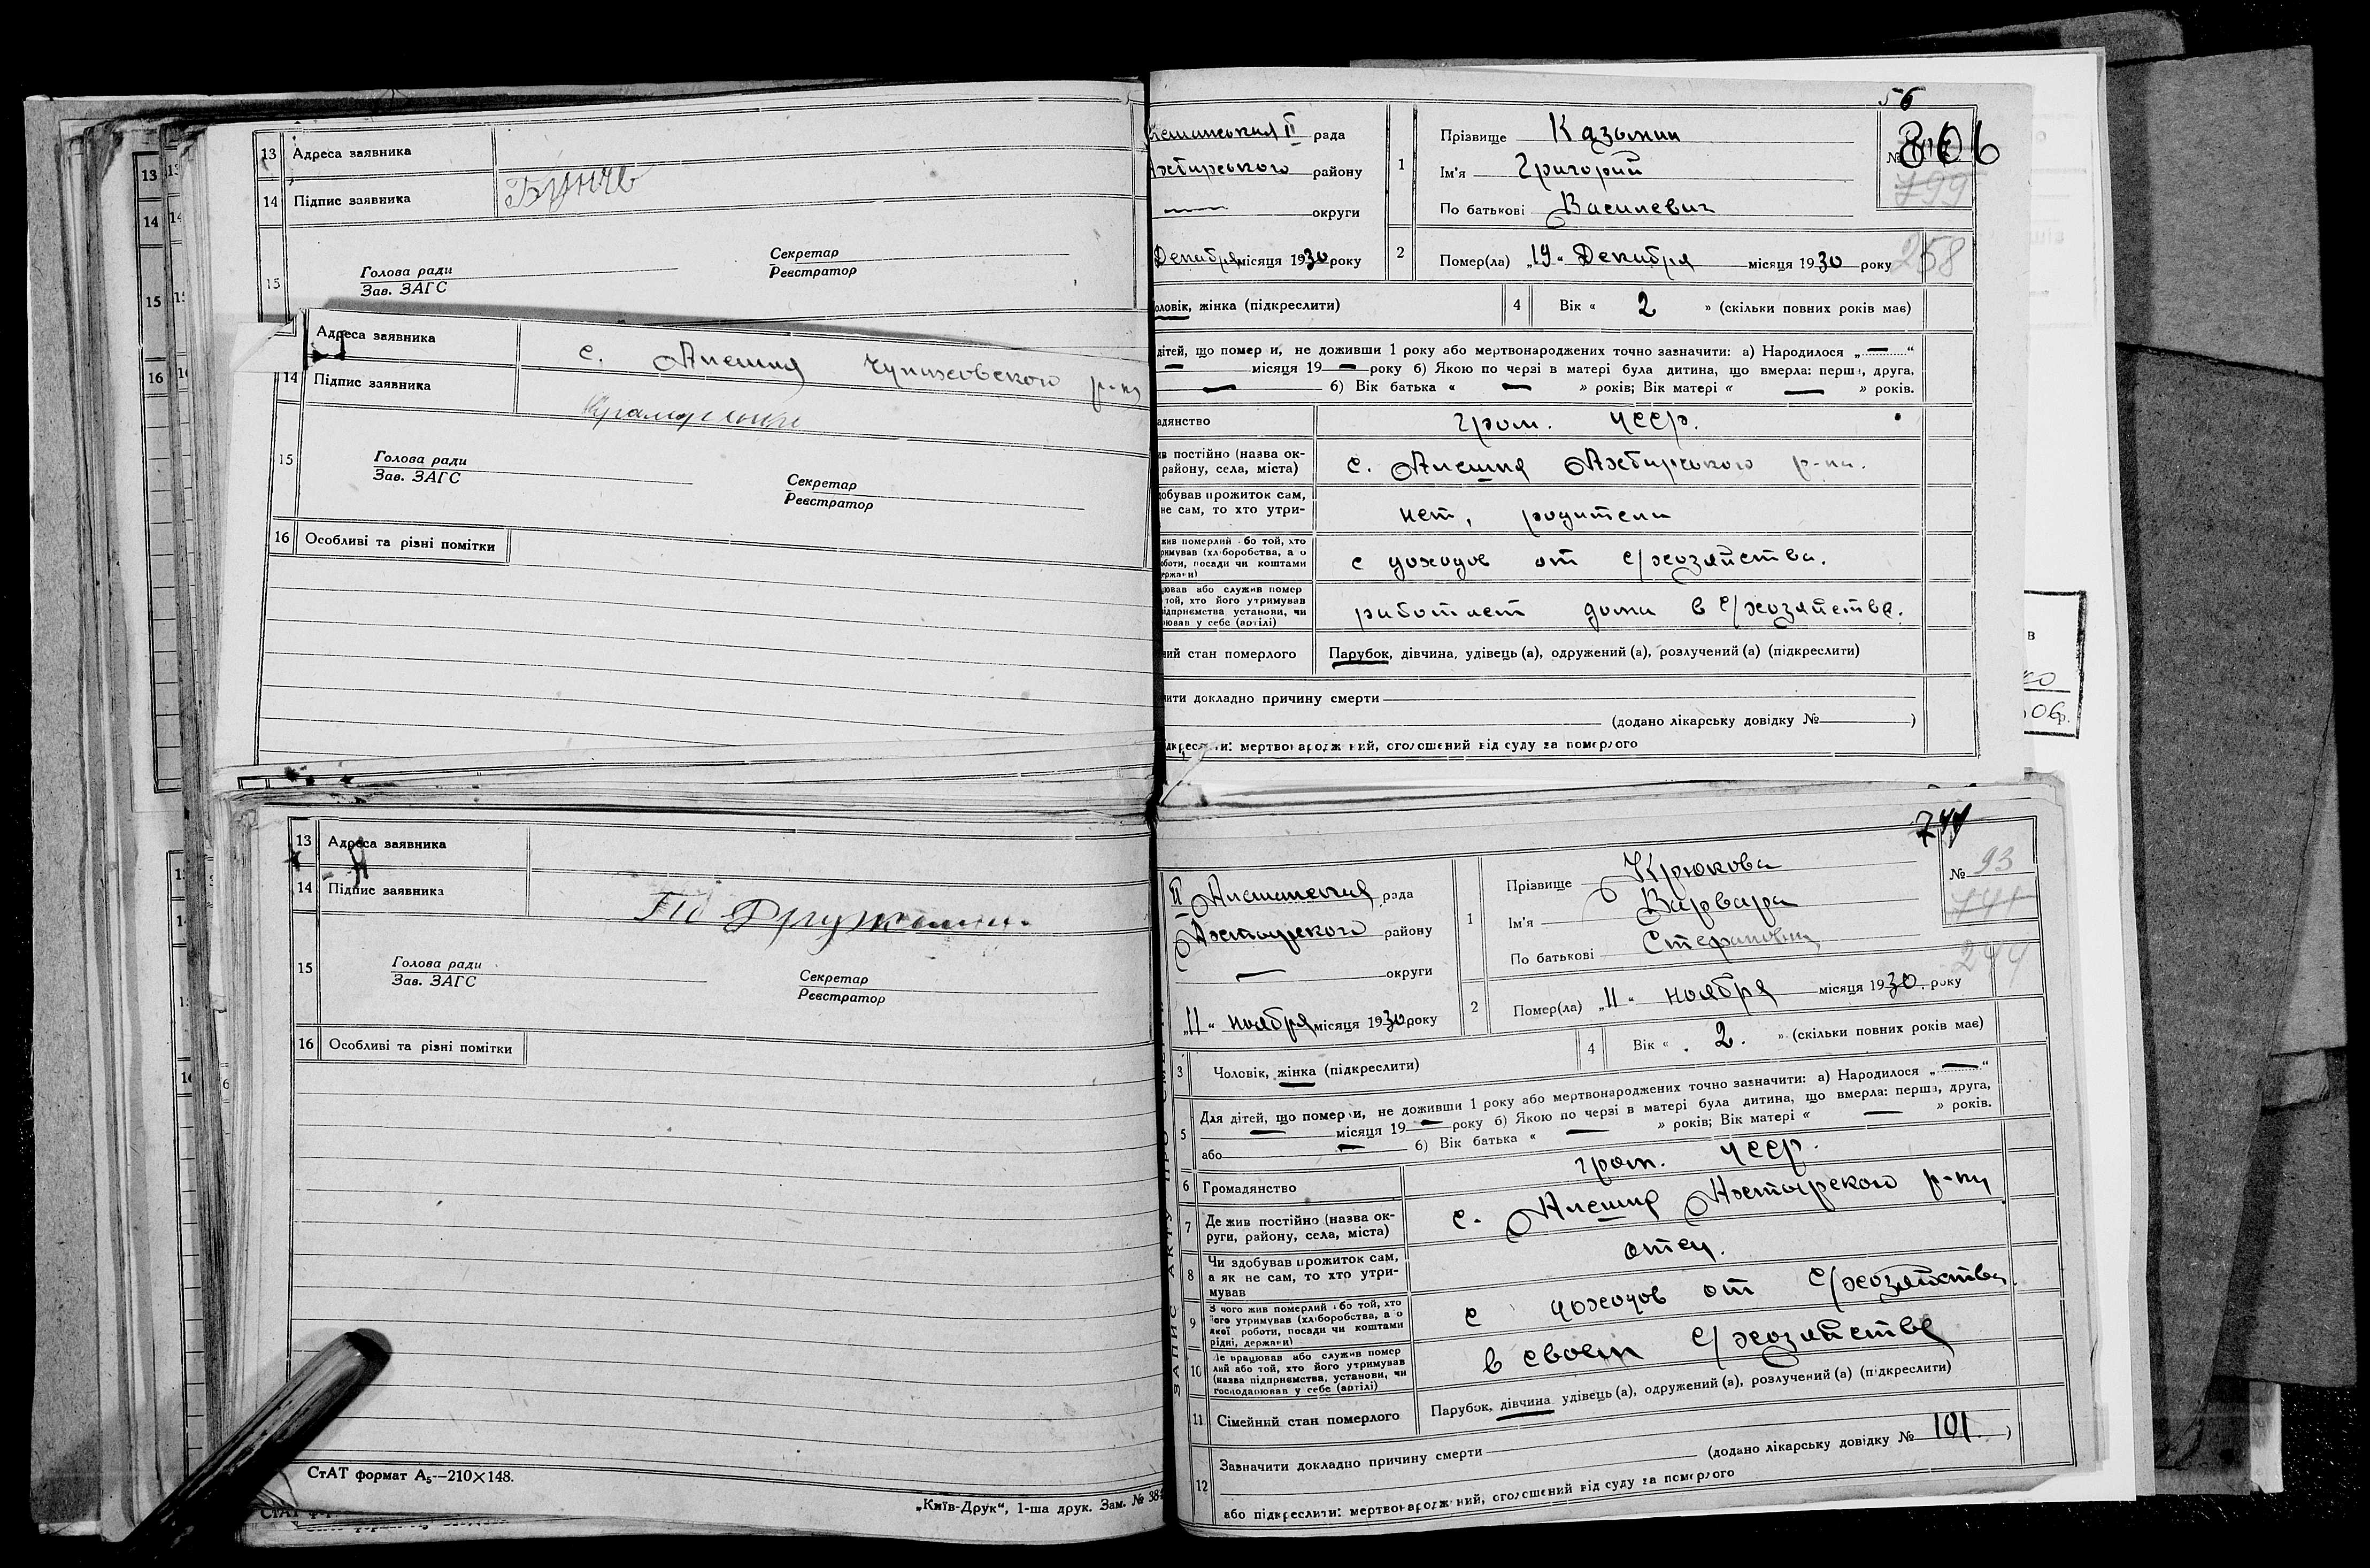 13 Адреса заявника
14 Підпис заявника
15 Голова ради
Зав. ЗАГС
Секретар
Реєстратор
Адреса заявника с. Алешня Чупаховского р-ну
14 Підпис заявника
15 Голова ради
Зав. ЗАГС
Секретар
Реєстратор
16 Особливі та різні помітки
13 Адреса заявника
14 Підпис заявника
15 Голова ради
Зав. ЗАГС
Секретар
Реєстратор
16 Особливі та різні помітки
СтАТ формат А5—210×148.
„Київ-Друк“, 1-ша друк. Зам. № 38
56
806
№
799
II рада
Ахтирського району
— округи
Декабря місяця 1930 року
1 Прізвище Казьмин
Ім'я Григорий
По батькові Василевич
2 Помер(ла) „19“ Декабря місяця 1930 року
258
оловік, жінка (підкреслити)
4 Вік « 2 » (скільки повних років має)
дітей, що помер и, не доживши 1 року або мертвонароджених точно зазначити: а) Народилося „—“
— місяця 19 — року б) Якою по черзі в матері була дитина, що вмерла: перша, друга,
— б) Вік батька « — » років; Вік матері « — » років.
адянство гром. УССР.
ив постійно (назва ок-
району, села, міста) с. Алешня Ахтирського р-на.
добував прожиток сам,
не сам, то хто утри- нет, родители
жив померлий або той, хто
римував (хліборобства, а о
оботи, посади чи коштами
ержави) с доходов от с/хозяйства.
цював або служив помер
той, хто його утримував
ідприємства установи, чи
рював у себе (артілі) работает дома в с/хозяйстве.
ний стан померлого Парубок, дівчина, удівець (а), одружений (а), розлучений (а) (підкреслити)
ити докладно причину смерти
(додано лікарську довідку № )
дкреслити: мертвонароджений, оголошений від суду за померлого
744
№ 93
II Алешанская рада
Ахтырского району
— округи
„11“ ноября місяця 1930 року
1 Прізвище Крюкова
Ім'я Варвара
По батькові Стефановна
244
2 Помер(ла) „11“ ноября місяця 1930 року
3 Чоловік, жінка (підкреслити)
4 Вік « 2. » (скільки повних років має)
5 Для дітей, що померли, не доживши 1 року або мертвонароджених точно зазначити: а) Народилося „—“
— місяця 19 — року б) Якою по черзі в матері була дитина, що вмерла: перша, друга,
або — б) Вік батька « — » років; Вік матері « — » років.
6 Громадянство гром. УССР.
7 Де жив постійно (назва ок-
руги, району, села, міста) с. Алешня Ахтырского р-ну
8 Чи здобував прожиток сам,
а як не сам, то хто утри-
мував отец.
9 З чого жив померлий або той, хто
його утримував (хліборобства, а о
якої роботи, посади чи коштами
рідні, держави) с доходов от с/хозяйства.
10 Де працював або служив помер
лий або той, хто його утримував
(назва підприємства, установи, чи
господарював у себе (артілі) в своем с/хозяйстве
11 Сімейний стан померлого Парубок, дівчина удівець (а), одружений (а), розлучений (а) (підкреслити)
12 Зазначити докладно причину смерти
(додано лікарську довідку № 101. )
або підкреслити: мертвонароджений, оголошений від суду за померлого